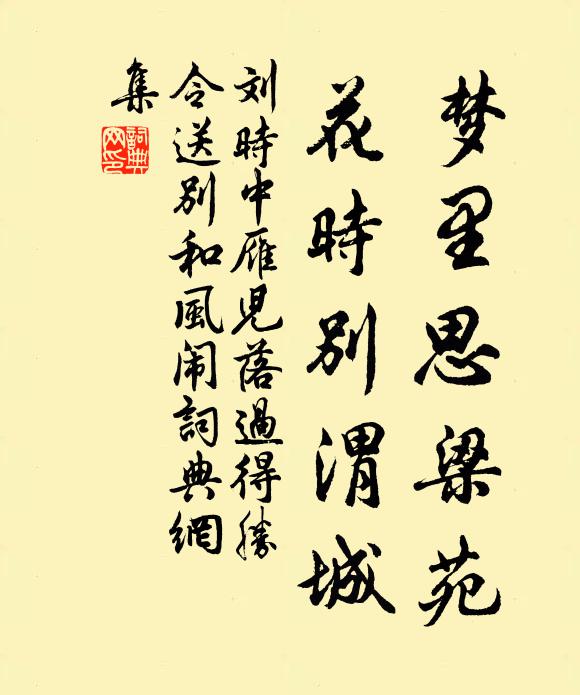 梦里思梁苑
花時别渭城
刘時中雁児落過得勝
令送别和風闹詞典網
集
詞典
网印